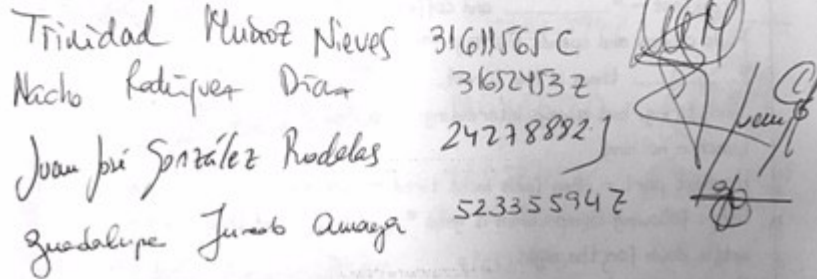 Trinidad Muñoz Nieves 31611565C
Nacho Rodríguez Díaz 31652453Z
Juan José González Rodelas 24278892J
Guadalupe Jurado Amaya 52335594Z